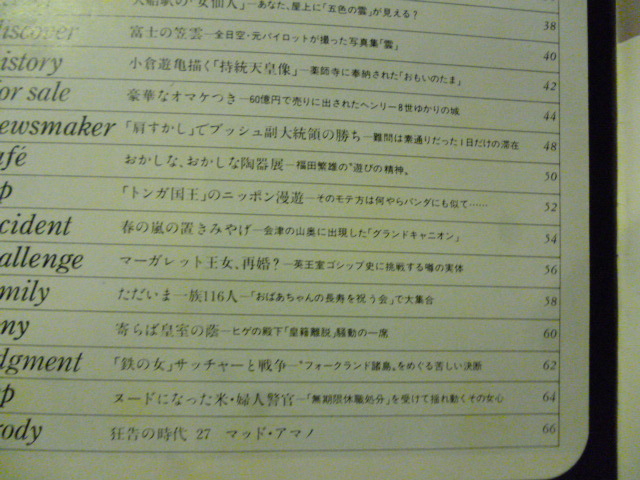 「女仙人」—あなた、屋上に「五色の雲」が見える?
discover 富士の笠雲—全日空・元パイロットが撮った写真集「雲」 38
istory 小倉遊亀描く「持統天皇像」—薬師寺に奉納された「おもいのたま」 40
or sale 豪華なオマケつき—60億円で売りに出されたヘンリー8世ゆかりの城 42
ewsmaker 「肩すかし」でブッシュ副大統領の勝ち—難問は素通りだった1日だけの滞在 44
afé おかしな、おかしな陶器展—福田繁雄の"遊びの精神。 48
p 「トンガ国王」のニッポン漫遊—そのモテ方は何やらパンダにも似て…… 50
ccident 春の嵐の置きみやげ—会津の山奥に出現した「グランドキャニオン」 52
allenge マーガレット王女、再婚?—英王室ゴシップ史に挑戦する噂の実体 54
mily ただいま一族116人—「おばあちゃんの長寿を祝う会」で大集合 56
ny 寄らば皇室の蔭—ヒゲの殿下「皇籍離脱」騒動の一席 58
dgment 「鉄の女」サッチャーと戦争—"フォークランド諸島。をめぐる苦しい決断 60
p ヌードになった米・婦人警官—「無期限休職処分」を受けて揺れ動くその女心 62
rody 狂告の時代 27 マッド・アマノ 64
66